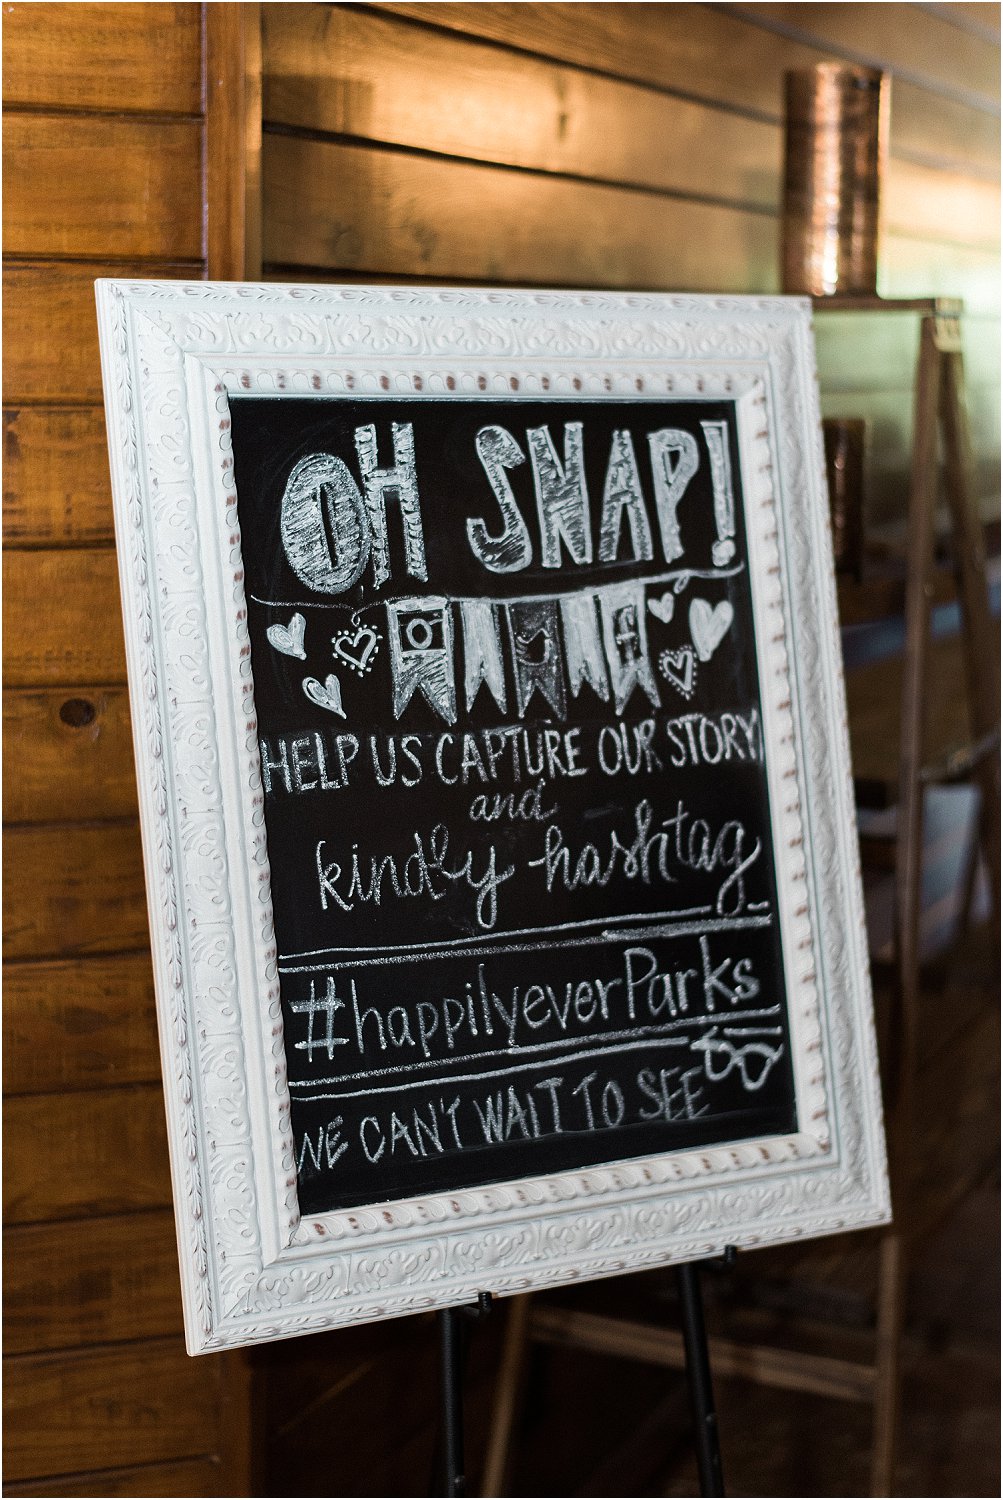 OH SNAP!
f
HELP US CAPTURE OUR STORY
and
kindly hashtag
#happilyeverParks
WE CAN'T WAIT TO SEE